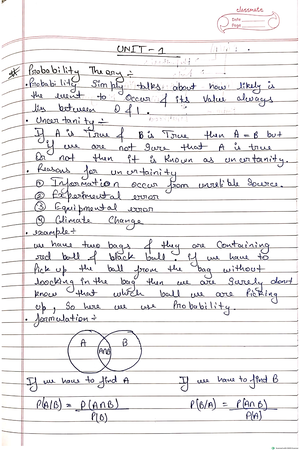 classmate
Date
Page
UNIT - 1
* Probability Theory :-
• Probability Simply talks about how likely is
the event to occur & its value always
lies between 0 & 1.
• Uncertanity :-
If A is True & B is True then A = B but
if we are not sure that A is true
or not then it is known as uncertanity.
• Reasons for uncertainity
① Information occur from unrelible source.
② Experimental error
③ Equipmental error
④ Climate Change
• example :-
we have two bags & they are containing
red ball & black ball. if we have to
pick up the ball from the bag without
loocking in the bag then we are surely don't
know that which ball we are picking
up, so here we use Probability.
• formulation :-
A A∩B B
If we have to find A If we have to find B
P(A/B) = P(A∩B) P(B/A) = P(A∩B)
P(B) P(A)